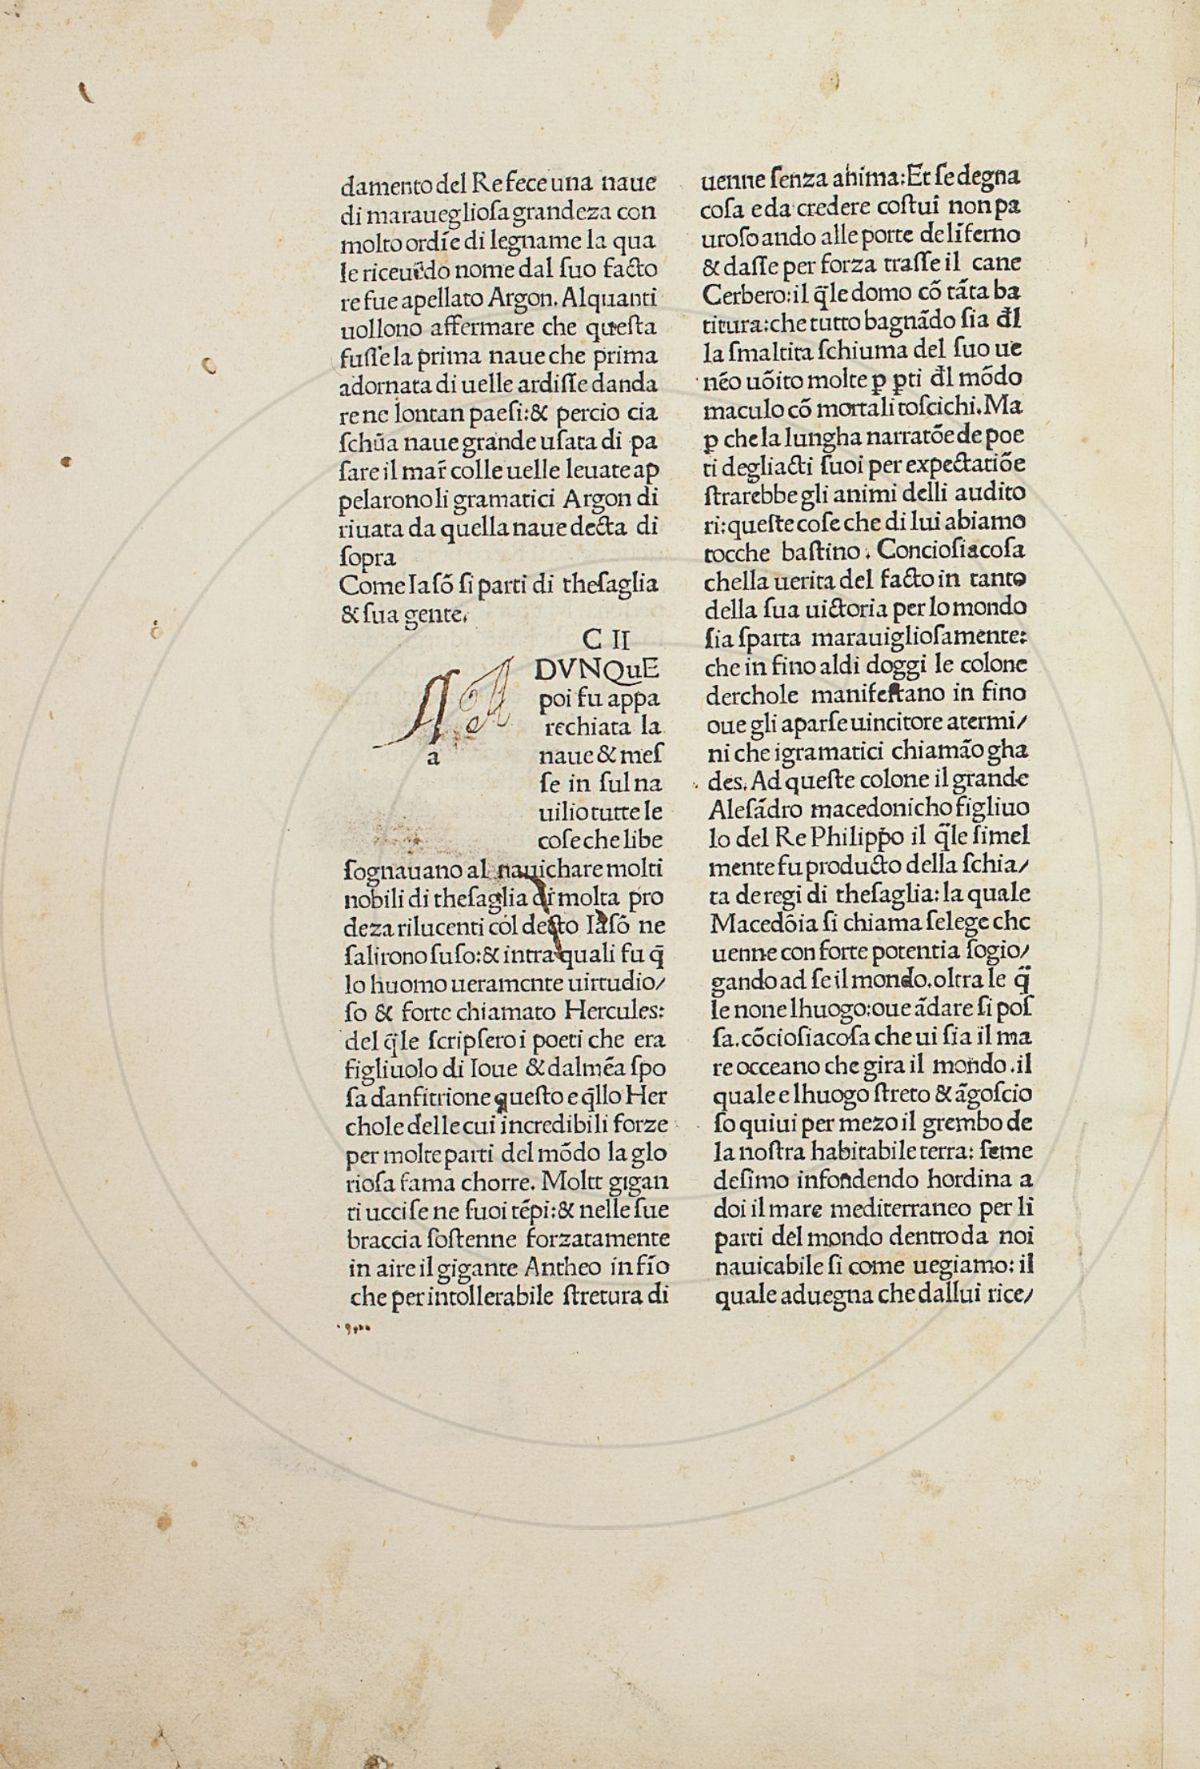 damento del Re fece una naue
di marauegliosa grandeza con
molto ordīe di legname la qua
le riceuēdo nome dal suo facto
re fue apellato Argon. Alquanti
uollono affermare che questa
fusse la prima naue che prima
adornata di uelle ardisse danda
re ne lontan paesi:& percio cia
schūa naue grande usata di pa
sare il mar̄ colle uelle leuate ap
pelarono li gramatici Argon di
riuata da quella naue decta di
sopra
Come Iasō si parti di thesaglia
& sua gente.
C II
A A
DVNQuE
poi fu appa
rechiata la
a
naue & mes
se in sul na
uilio tutte le
cose che libe
sognauano al nauichare molti
nobili di thesaglia di molta pro
deza rilucenti col decto Iasō ne
salirono suso:& intra quali fu q̄
lo huomo ueramente uirtudio/
so & forte chiamato Hercules:
del q̄le scripsero i poeti che era
figliuolo di Ioue & dalmēa spo
sa danfitrione questo e q̄llo Her
chole delle cui incredibili forze
per molte parti del mōdo la glo
riosa fama chorre. Moltt gigan
ti uccise ne suoi tēpi:& nelle sue
braccia sostenne forzatamente
in aire il gigante Antheo in fīo
che per intollerabile stretura di
uenne senza anima: Et se degna
cosa e da credere costui non pa
uroso ando alle porte de līferno
& dasse per forza trasse il cane
Cerbero: il q̄le domo cō tāta ba
titura: che tutto bagnādo sia đl
la smaltita schiuma del suo ue
nēo uōito molte ꝑ ꝑti đl mōdo
maculo cō mortali toscichi. Ma
ꝑ che la lungha narratōe de poe
ti degliacti suoi per expectatiōe
strarebbe gli animi delli audito
ri: queste cose che di lui abiamo
tocche bastino. Conciosiacosa
chella uerita del facto in tanto
della sua uictoria per lo mondo
sia sparta marauigliosamente:
che in fino aldi doggi le colone
derchole manifestano in fino
oue gli aparse uincitore atermi/
ni che igramatici chiamāo gha
des. Ad queste colone il grande
Alesādro macedonicho figliuo
lo del Re Philippo il q̄le simel
mente fu producto della schia/
ta de regi di thesaglia: la quale
Macedōia si chiama selege che
uenne con forte potentia sogio/
gando ad se il mondo. oltra le q̄
le none lhuogo: oue ādare si pos
sa. cōciosiacosa che ui sia il ma
re occeano che gira il mondo. il
quale e lhuogo streto & āgoscio
so quiui per mezo il grembo de
la nostra habitabile terra: seme
desimo infondendo hordina a
doi il mare mediterraneo per li
parti del mondo dentro da noi
nauicabile si come uegiamo: il
quale aduegna che dallui rice/